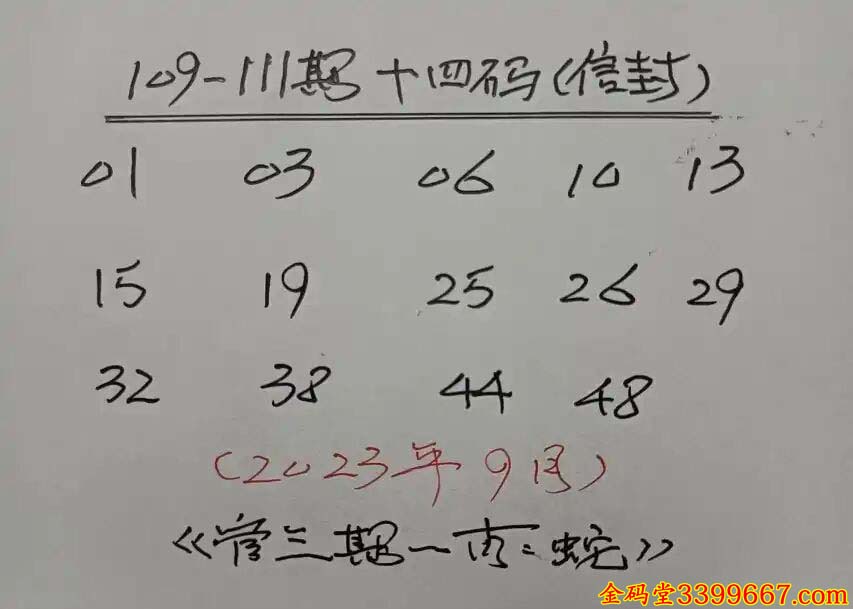 109-111期十四码(信封)
01 03 06 10 13
15 19 25 26 29
32 38 44 48
(2023年9月)
《管三期一肖:蛇》
金码堂3399667.com